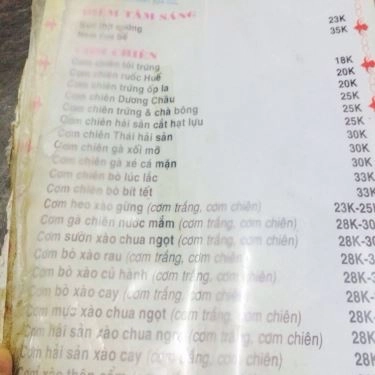 ĐIỂM TÂM SÁNG
Bún thịt nướng 23K
35K
CƠM CHIÊN
Cơm chiên tỏi trứng 18K
Cơm chiên ruốc Huế 20K
Cơm chiên trứng ốp la 20K
Cơm chiên Dương Châu 25K
Cơm chiên trứng & chà bông 25K
Cơm chiên hải sản cắt hạt lựu 25K
Cơm chiên Thái hải sản 30K
Cơm chiên gà xối mỡ 30K
Cơm chiên gà xé cá mặn 30K
Cơm chiên bò lúc lắc 33K
Cơm chiên bò bít tết 33K
Cơm heo xào gừng (cơm trắng, cơm chiên) 23K-25
Cơm gà chiên nước mắm (cơm trắng, cơm chiên) 28K-30
Cơm sườn xào chua ngọt (cơm trắng, cơm chiên) 28K-30
Cơm bò xào rau (cơm trắng, cơm chiên) 28K-3
Cơm bò xào củ hành (cơm trắng, cơm chiên) 28K-3
Cơm bò xào cay (cơm trắng, cơm chiên) 28K-
Cơm mực xào chua ngọt (cơm trắng, cơm chiên) 28K-
Cơm hải sản xào chua ngọt (cơm trắng, cơm chiên) 28K
Cơm hải sản xào cay (cơm trắng, cơm chiên) 28K